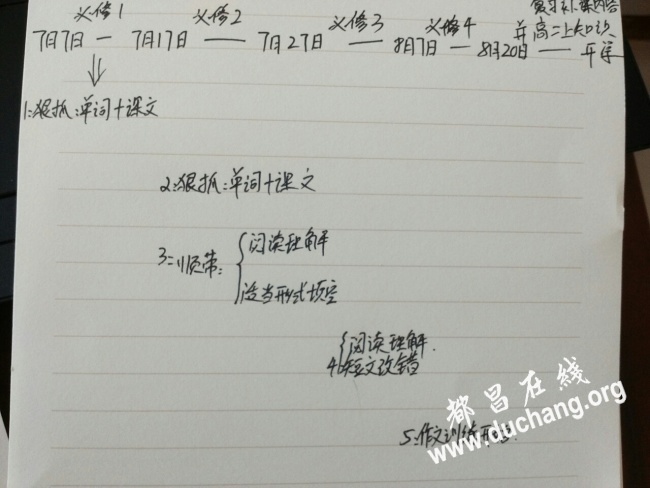 必修1 必修2 必修3 必修4 复习补课内容
并高二上知识
7月7日 — 7月17日 — 7月27日 — 8月7日 — 8月20日 — 开学
1:狠抓:单词+课文
2:狠抓:单词+课文
3:顺带:{阅读理解
适当形式填空
{阅读理解.
4 短文改错
5:作文训练
都昌在线
www.duchang.org